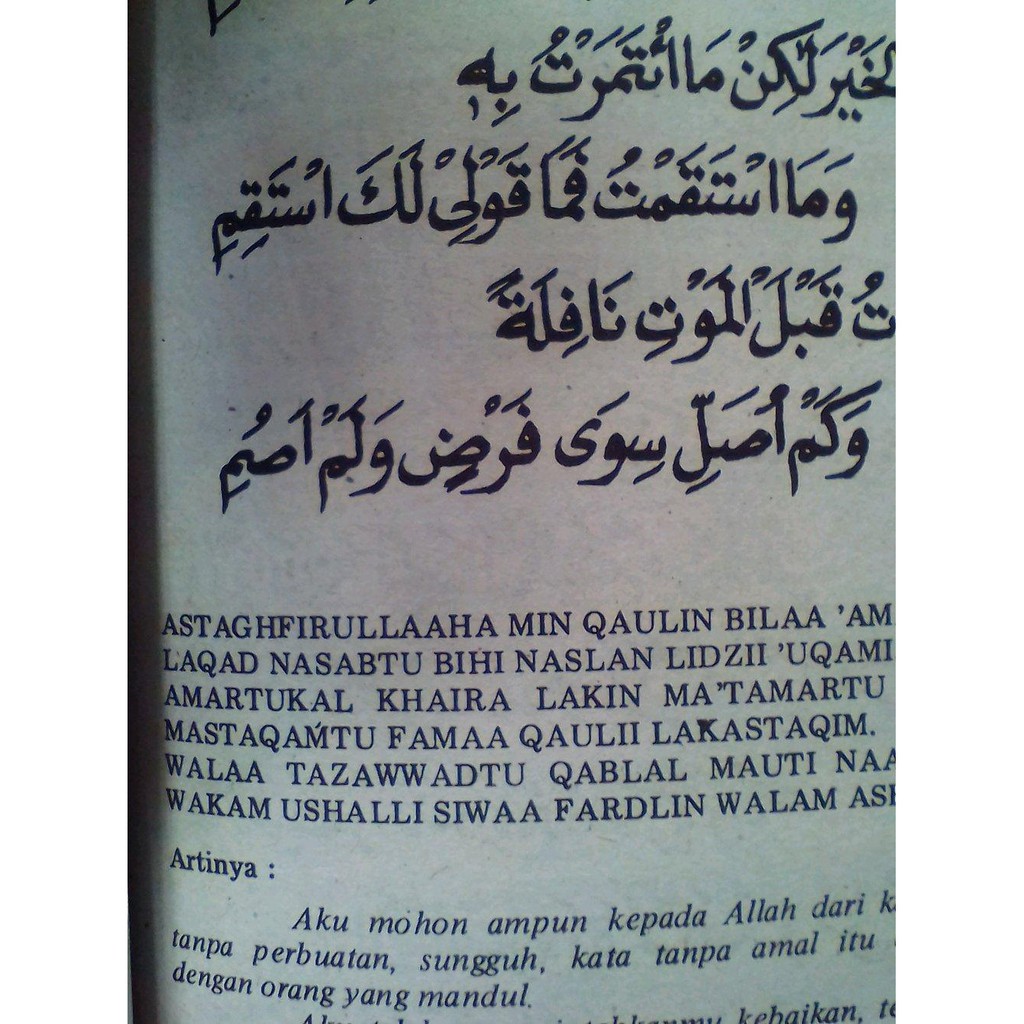 الخَيْرَ لَكِنْ مَا ائْتَمَرْتُ بِهِ
وَمَا اسْتَقَمْتُ فَمَا قَوْلِيْ لَكَ اسْتَقِمِ
تُ قَبْلَ الْمَوْتِ نَافِلَةً
وَكَمْ اُصَلِّ سِوَى فَرْضٍ وَلَمْ اَصُمِ
ASTAGHFIRULLAAHA MIN QAULIN BILAA 'AM
LAQAD NASABTU BIHI NASLAN LIDZII 'UQAMI
AMARTUKAL KHAIRA LAKIN MA'TAMARTU
MASTAQAMTU FAMAA QAULII LAKASTAQIM.
WALAA TAZAWWADTU QABLAL MAUTI NAA
WAKAM USHALLI SIWAA FARDLIN WALAM ASH
Artinya :
Aku mohon ampun kepada Allah dari k
tanpa perbuatan, sungguh, kata tanpa amal itu
dengan orang yang mandul.
kebaikan, te